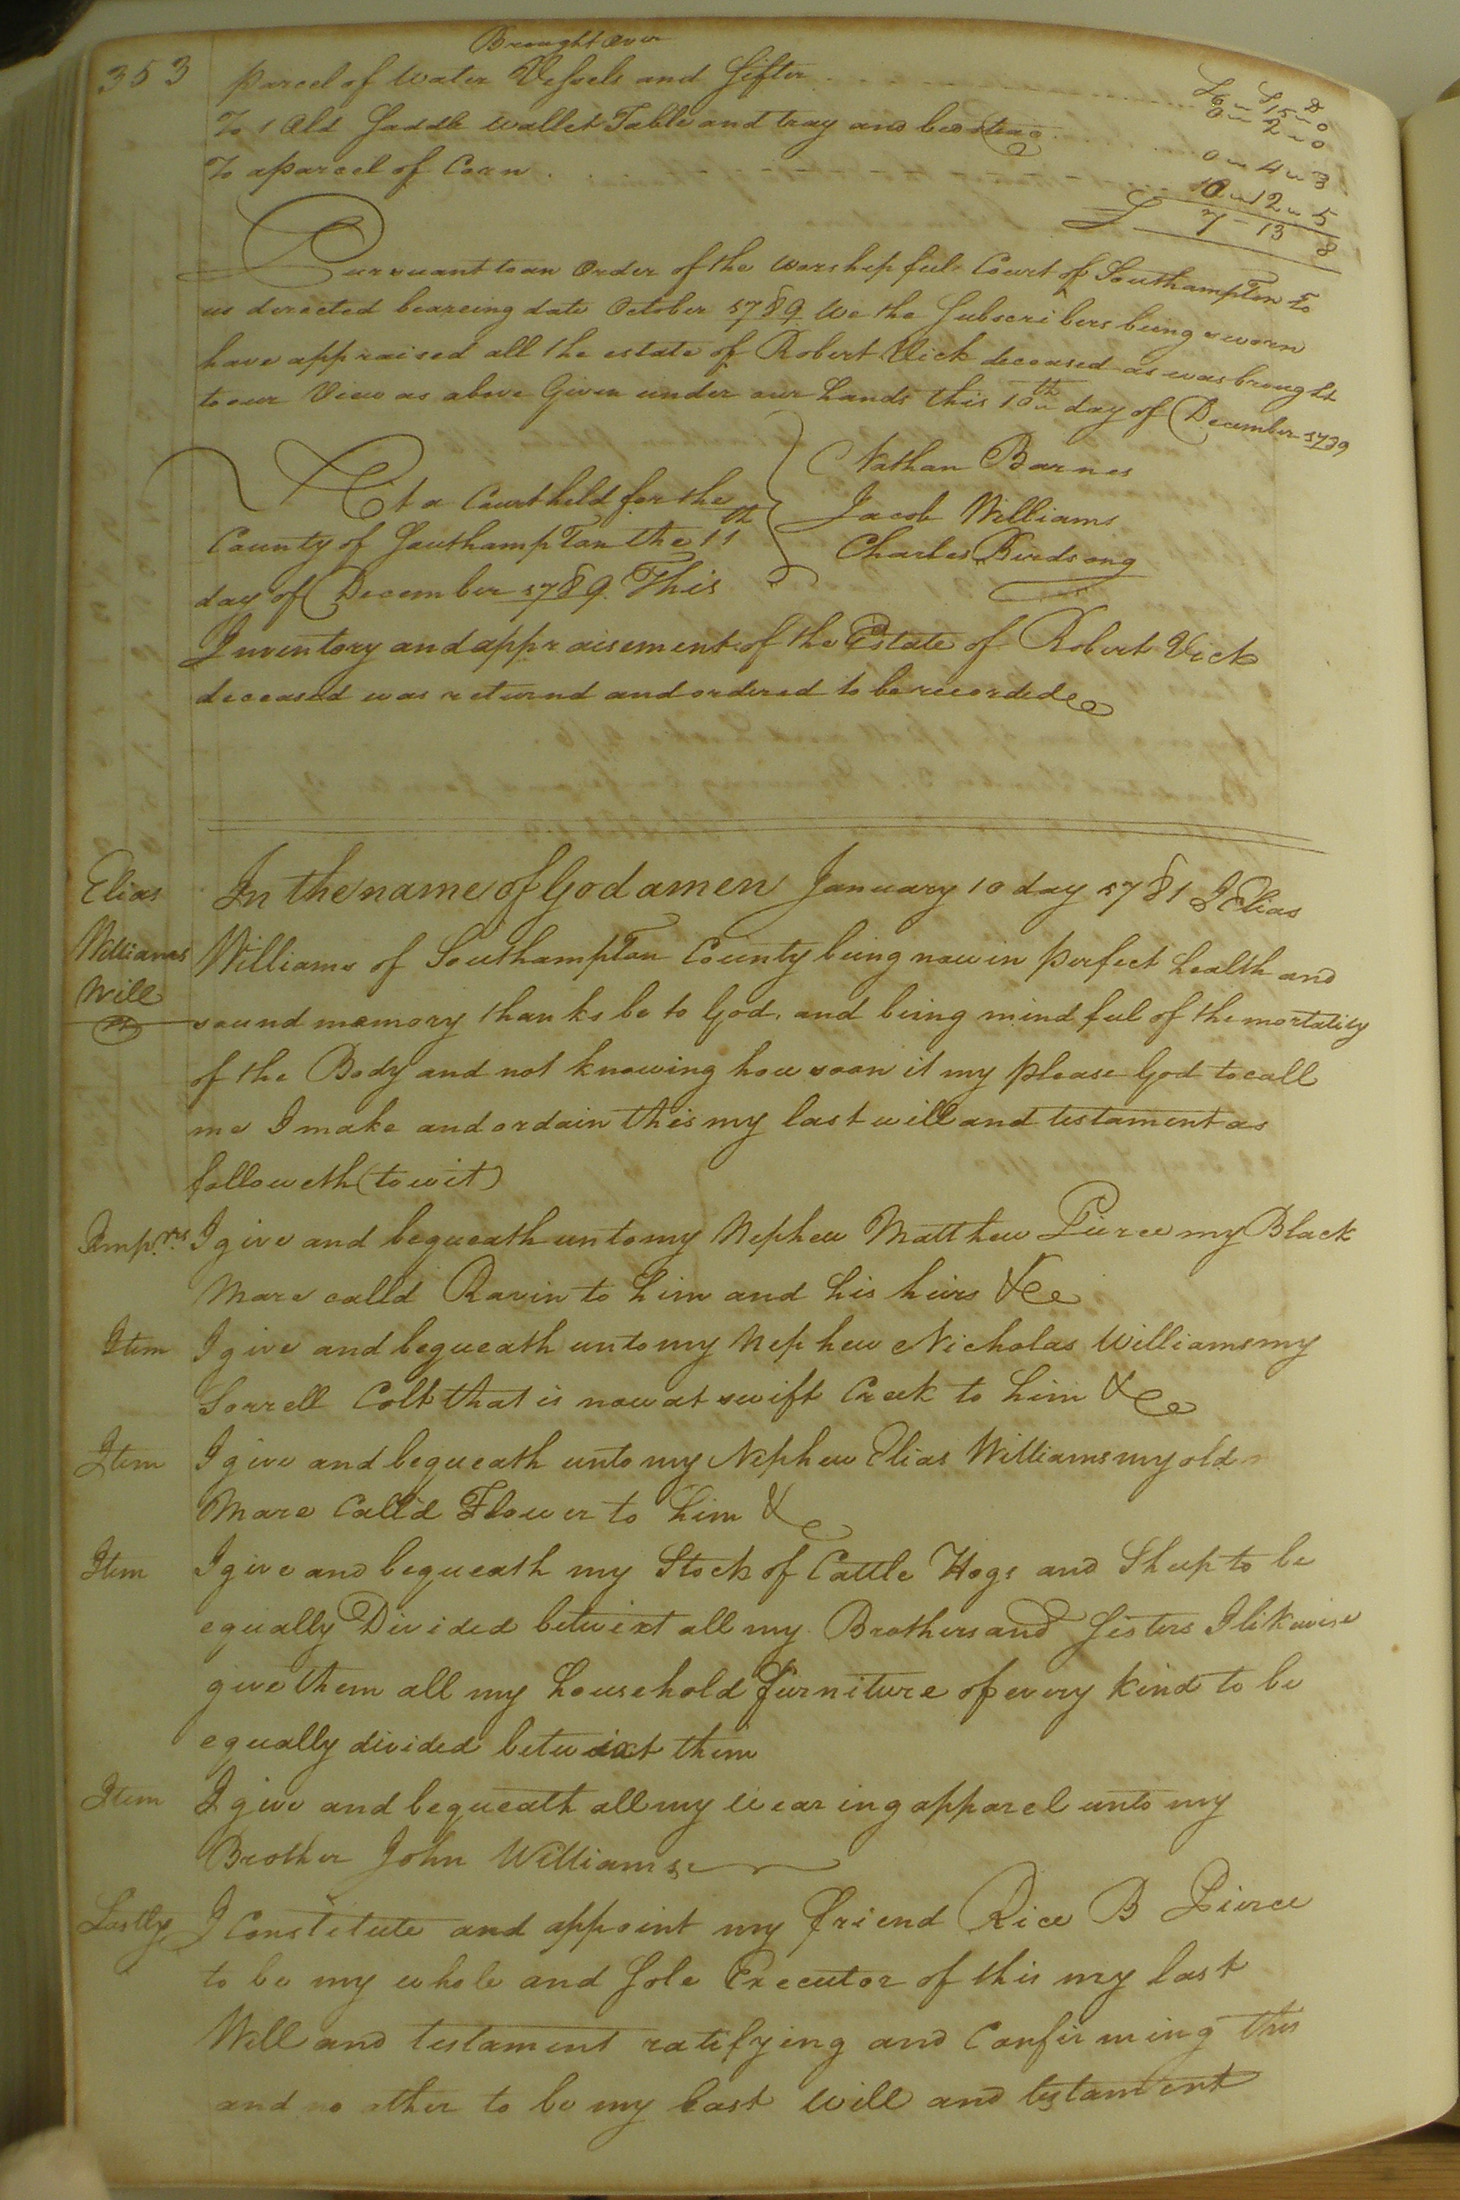 353
Brought over
£ S D
parcel of water Vessels and Sifter 6 " 15 " 0
0 " 2 " 0
To 1 Old Saddle Wallet Table and tray and bedstead 0 " 4 " 3
To a parcel of Corn 0 " 12 " 5
£ 7 - 13 8
Pursuant to an Order of the worshipful Court of Southampton to
us directed beareing date October 1789 We the Subscribers being sworn
have appraised all the estate of Robert Vick deceased as was brought
to our View as above Given under our hands this 10th day of December 1789
Nathan Barnes
At a Court held for the
Jacob Williams
County of Southampton the 11th
Charles Birdsong
day of December 1789 This
Inventory and appraisement of the Estate of Robert Vick
deceased was returnd and ordered to be recorded
Elias
Williams
Will
In the name of God amen January 10 day 1781 I Elias
Williams of Southampton County being now in perfect health and
sound memory thanks be to God, and being mindful of the mortality
of the Body and not knowing how soon it my please God to call
me I make and ordain this my last will and testament as
followeth (to wit)
Imp.rs I give and bequeath unto my Nephew Matthew Pierce my Black
Mare calld Ravin to him and his heirs &c
Item I give and bequeath unto my Nephew Nicholas Williams my
Sorrell Colt that is now at swift Creek to him &c
Item I give and bequeath unto my Nephew Elias Williams my old
Mare Call'd Flower to him &c
Item I give and bequeath my Stock of Cattle Hogs and Sheep to be
equally Divided betwixt all my Brothers and Sisters I likewise
give them all my household furniture of every kind to be
equally divided betwixt them
Item I give and bequeath all my wearing apparel unto my
Brother John Williams
Lastly I Constitute and appoint my friend Rice B Pierce
to be my whole and Sole Executor of this my last
Will and testament ratifying and Confirming this
and no other to be my last will and testament